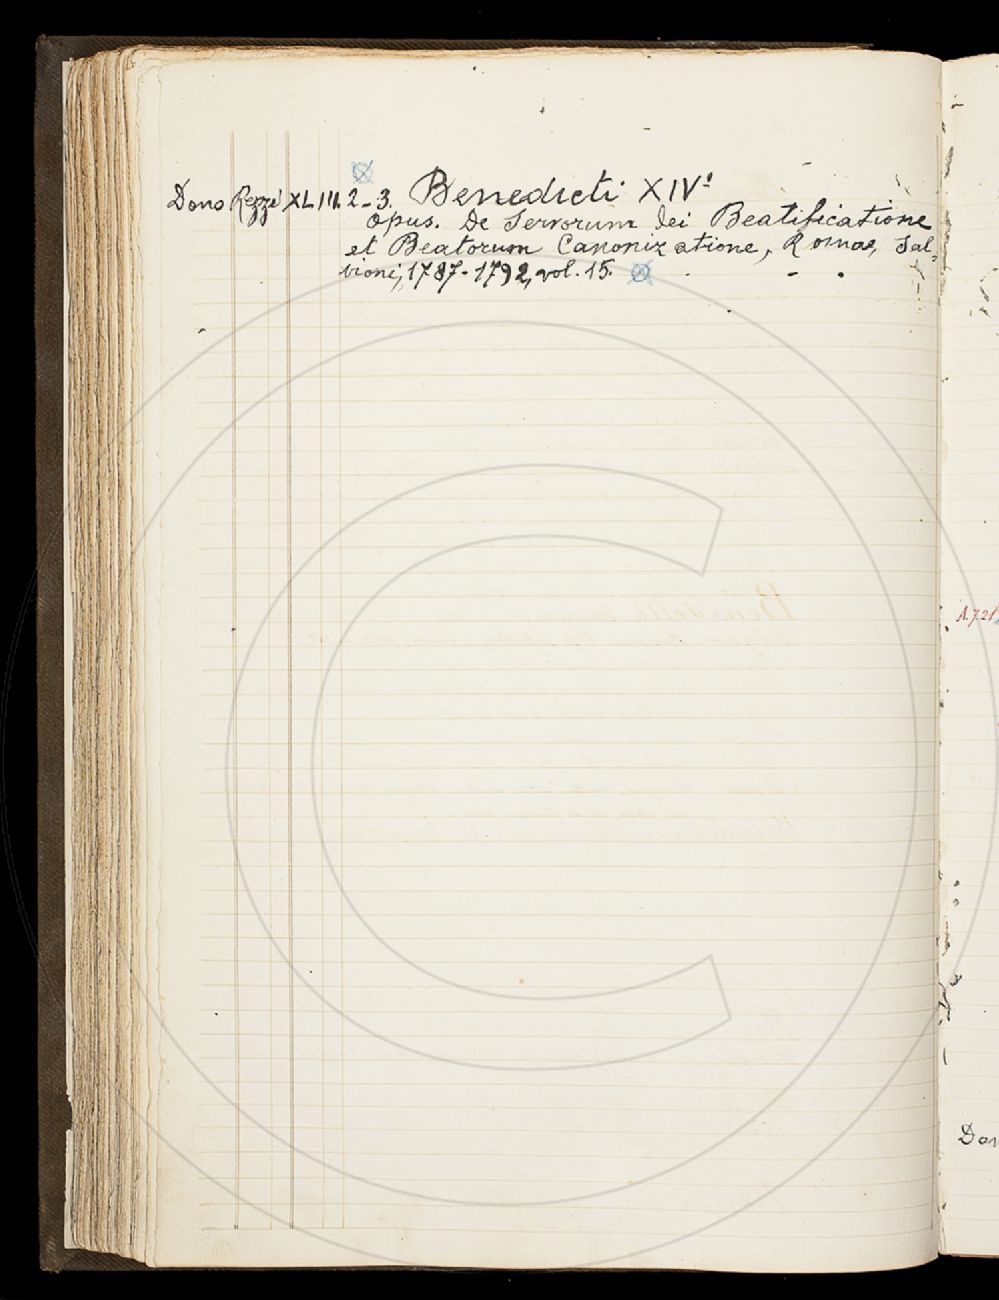 Dono Rezzi XLIII. 2-3. Benedicti XIV.i
Opus. De Servorum Dei Beatificatione
et Beatorum Canonizatione, Romae, Sal-
vioni, 1787-1792, vol. 15.
A.721
Don